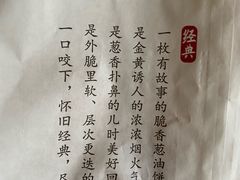 经典
一枚有故事的脆香葱油饼
是金黄诱人的浓浓烟火气
是葱香扑鼻的儿时美好回
是外脆里软、层次更迭的
一口咬下，怀旧经典，